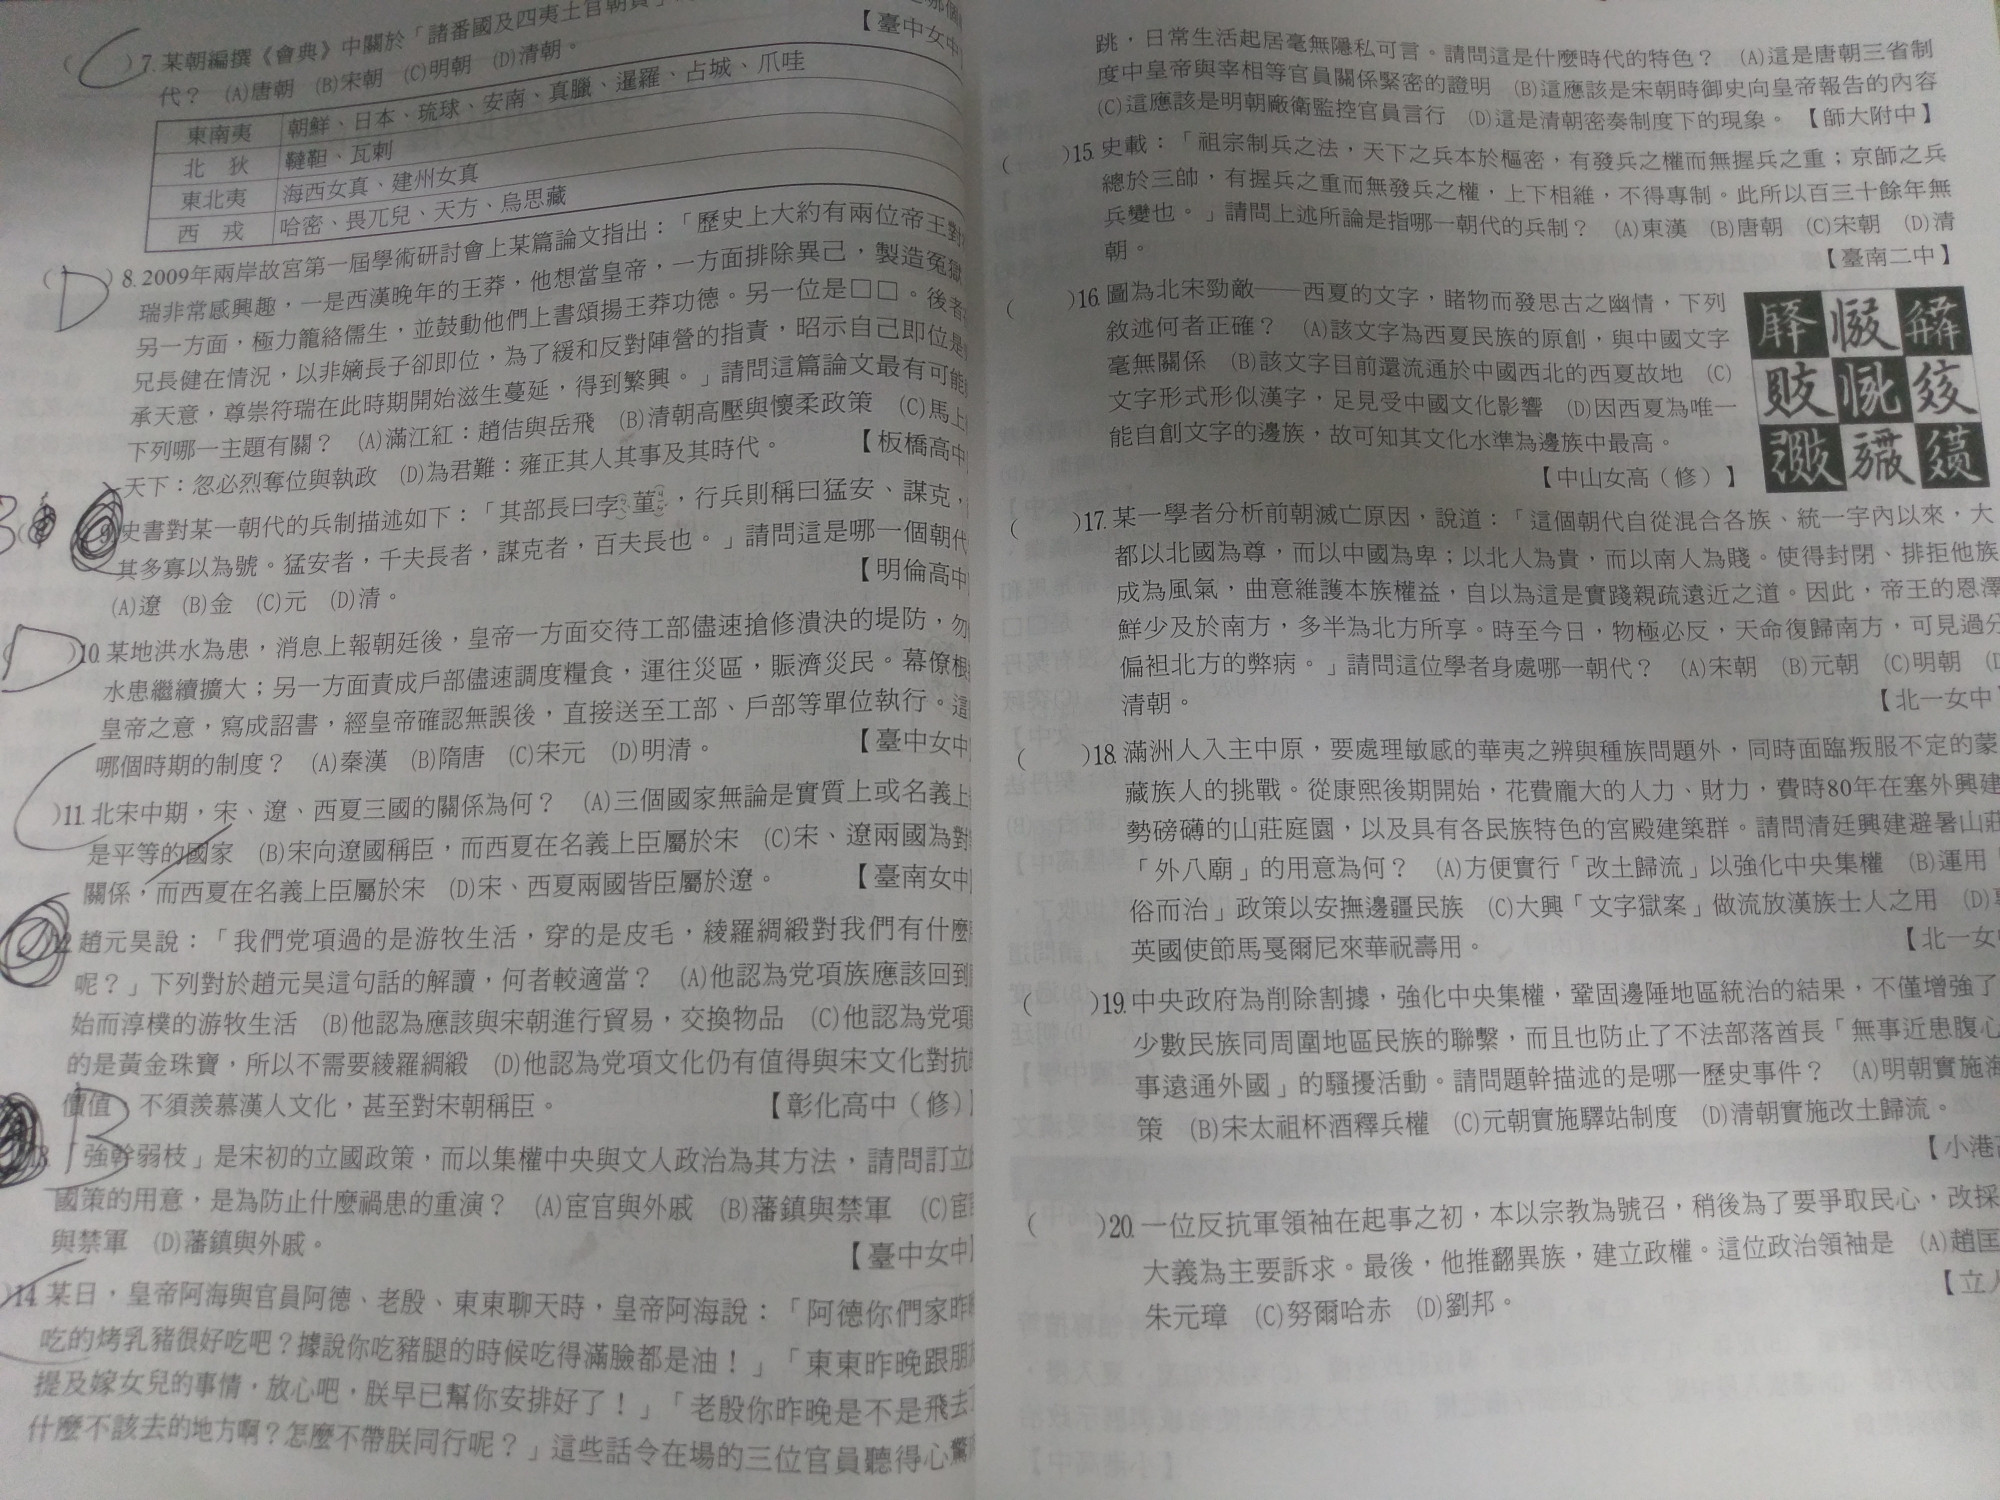 7. 某朝編撰《會典》中關於「諸番國及四夷土官朝貢」
【臺中女中
代？　(A)唐朝　(B)宋朝　(C)明朝　(D)清朝。
東南夷　朝鮮、日本、琉球、安南、真臘、暹羅、占城、爪哇
北　狄　韃靼、瓦剌
東北夷　海西女真、建州女真
西　戎　哈密、畏兀兒、天方、烏思藏
D
( )8. 2009年兩岸故宮第一屆學術研討會上某篇論文指出：「歷史上大約有兩位帝王對
瑞非常感興趣，一是西漢晚年的王莽，他想當皇帝，一方面排除異己，製造冤獄
另一方面，極力籠絡儒生，並鼓動他們上書頌揚王莽功德。另一位是□□。後者
兄長健在情況，以非嫡長子卻即位，為了緩和反對陣營的指責，昭示自己即位是
承天意，尊崇符瑞在此時期開始滋生蔓延，得到繁興。」請問這篇論文最有可能
下列哪一主題有關？　(A)滿江紅：趙佶與岳飛　(B)清朝高壓與懷柔政策　(C)馬上
天下：忽必烈奪位與執政　(D)為君難：雍正其人其事及其時代。　【板橋高中
史書對某一朝代的兵制描述如下：「其部長曰孛堇，行兵則稱曰猛安、謀克，
其多寡以為號。猛安者，千夫長者，謀克者，百夫長也。」請問這是哪一個朝代
(A)遼　(B)金　(C)元　(D)清。　【明倫高中
D
)10. 某地洪水為患，消息上報朝廷後，皇帝一方面交待工部儘速搶修潰決的堤防，勿
水患繼續擴大；另一方面責成戶部儘速調度糧食，運往災區，賑濟災民。幕僚根
皇帝之意，寫成詔書，經皇帝確認無誤後，直接送至工部、戶部等單位執行。這
哪個時期的制度？　(A)秦漢　(B)隋唐　(C)宋元　(D)明清。　【臺中女中
)11. 北宋中期，宋、遼、西夏三國的關係為何？　(A)三個國家無論是實質上或名義上
是平等的國家　(B)宋向遼國稱臣，而西夏在名義上臣屬於宋　(C)宋、遼兩國為對
關係，而西夏在名義上臣屬於宋　(D)宋、西夏兩國皆臣屬於遼。　【臺南女中
趙元昊說：「我們党項過的是游牧生活，穿的是皮毛，綾羅綢緞對我們有什麼
呢？」下列對於趙元昊這句話的解讀，何者較適當？　(A)他認為党項族應該回到
始而淳樸的游牧生活　(B)他認為應該與宋朝進行貿易，交換物品　(C)他認為党項
的是黃金珠寶，所以不需要綾羅綢緞　(D)他認為党項文化仍有值得與宋文化對抗
價值，不須羨慕漢人文化，甚至對宋朝稱臣。　【彰化高中（修）】
B
「強幹弱枝」是宋初的立國政策，而以集權中央與文人政治為其方法，請問訂立
國策的用意，是為防止什麼禍患的重演？　(A)宦官與外戚　(B)藩鎮與禁軍　(C)宦
與禁軍　(D)藩鎮與外戚。　【臺中女中】
)14. 某日，皇帝阿海與官員阿德、老殷、東東聊天時，皇帝阿海說：「阿德你們家昨
吃的烤乳豬很好吃吧？據說你吃豬腿的時候吃得滿臉都是油！」「東東昨晚跟朋
提及嫁女兒的事情，放心吧，朕早已幫你安排好了！」「老殷你昨晚是不是飛去
什麼不該去的地方啊？怎麼不帶朕同行呢？」這些話令在場的三位官員聽得心驚
跳，日常生活起居毫無隱私可言。請問這是什麼時代的特色？　(A)這是唐朝三省制
度中皇帝與宰相等官員關係緊密的證明　(B)這應該是宋朝時御史向皇帝報告的內容
(C)這應該是明朝廠衛監控官員言行　(D)這是清朝密奏制度下的現象。　【師大附中】
( )15. 史載：「祖宗制兵之法，天下之兵本於樞密，有發兵之權而無握兵之重；京師之兵
總於三帥，有握兵之重而無發兵之權，上下相維，不得專制。此所以百三十餘年無
兵變也。」請問上述所論是指哪一朝代的兵制？　(A)東漢　(B)唐朝　(C)宋朝　(D)清
朝。　【臺南二中】
( )16. 圖為北宋勁敵——西夏的文字，睹物而發思古之幽情，下列
敘述何者正確？　(A)該文字為西夏民族的原創，與中國文字
毫無關係　(B)該文字目前還流通於中國西北的西夏故地　(C)
文字形式形似漢字，足見受中國文化影響　(D)因西夏為唯一
能自創文字的邊族，故可知其文化水準為邊族中最高。
【中山女高（修）】
( )17. 某一學者分析前朝滅亡原因，說道：「這個朝代自從混合各族、統一宇內以來，大
都以北國為尊，而以中國為卑；以北人為貴，而以南人為賤。使得封閉、排拒他族
成為風氣，曲意維護本族權益，自以為這是實踐親疏遠近之道。因此，帝王的恩澤
鮮少及於南方，多半為北方所享。時至今日，物極必反，天命復歸南方，可見過分
偏袒北方的弊病。」請問這位學者身處哪一朝代？　(A)宋朝　(B)元朝　(C)明朝
清朝。　【北一女中】
( )18. 滿洲人入主中原，要處理敏感的華夷之辨與種族問題外，同時面臨叛服不定的蒙
藏族人的挑戰。從康熙後期開始，花費龐大的人力、財力，費時80年在塞外興建
勢磅礴的山莊庭園，以及具有各民族特色的宮殿建築群。請問清廷興建避暑山莊
「外八廟」的用意為何？　(A)方便實行「改土歸流」以強化中央集權　(B)運用
俗而治」政策以安撫邊疆民族　(C)大興「文字獄案」做流放漢族士人之用　(D)
英國使節馬戛爾尼來華祝壽用。　【北一女
( )19. 中央政府為削除割據，強化中央集權，鞏固邊陲地區統治的結果，不僅增強了
少數民族同周圍地區民族的聯繫，而且也防止了不法部落酋長「無事近患腹心
事遠通外國」的騷擾活動。請問題幹描述的是哪一歷史事件？　(A)明朝實施海
策　(B)宋太祖杯酒釋兵權　(C)元朝實施驛站制度　(D)清朝實施改土歸流。
【小港
( )20. 一位反抗軍領袖在起事之初，本以宗教為號召，稍後為了要爭取民心，改採
大義為主要訴求。最後，他推翻異族，建立政權。這位政治領袖是　(A)趙匡
朱元璋　(C)努爾哈赤　(D)劉邦。　【立